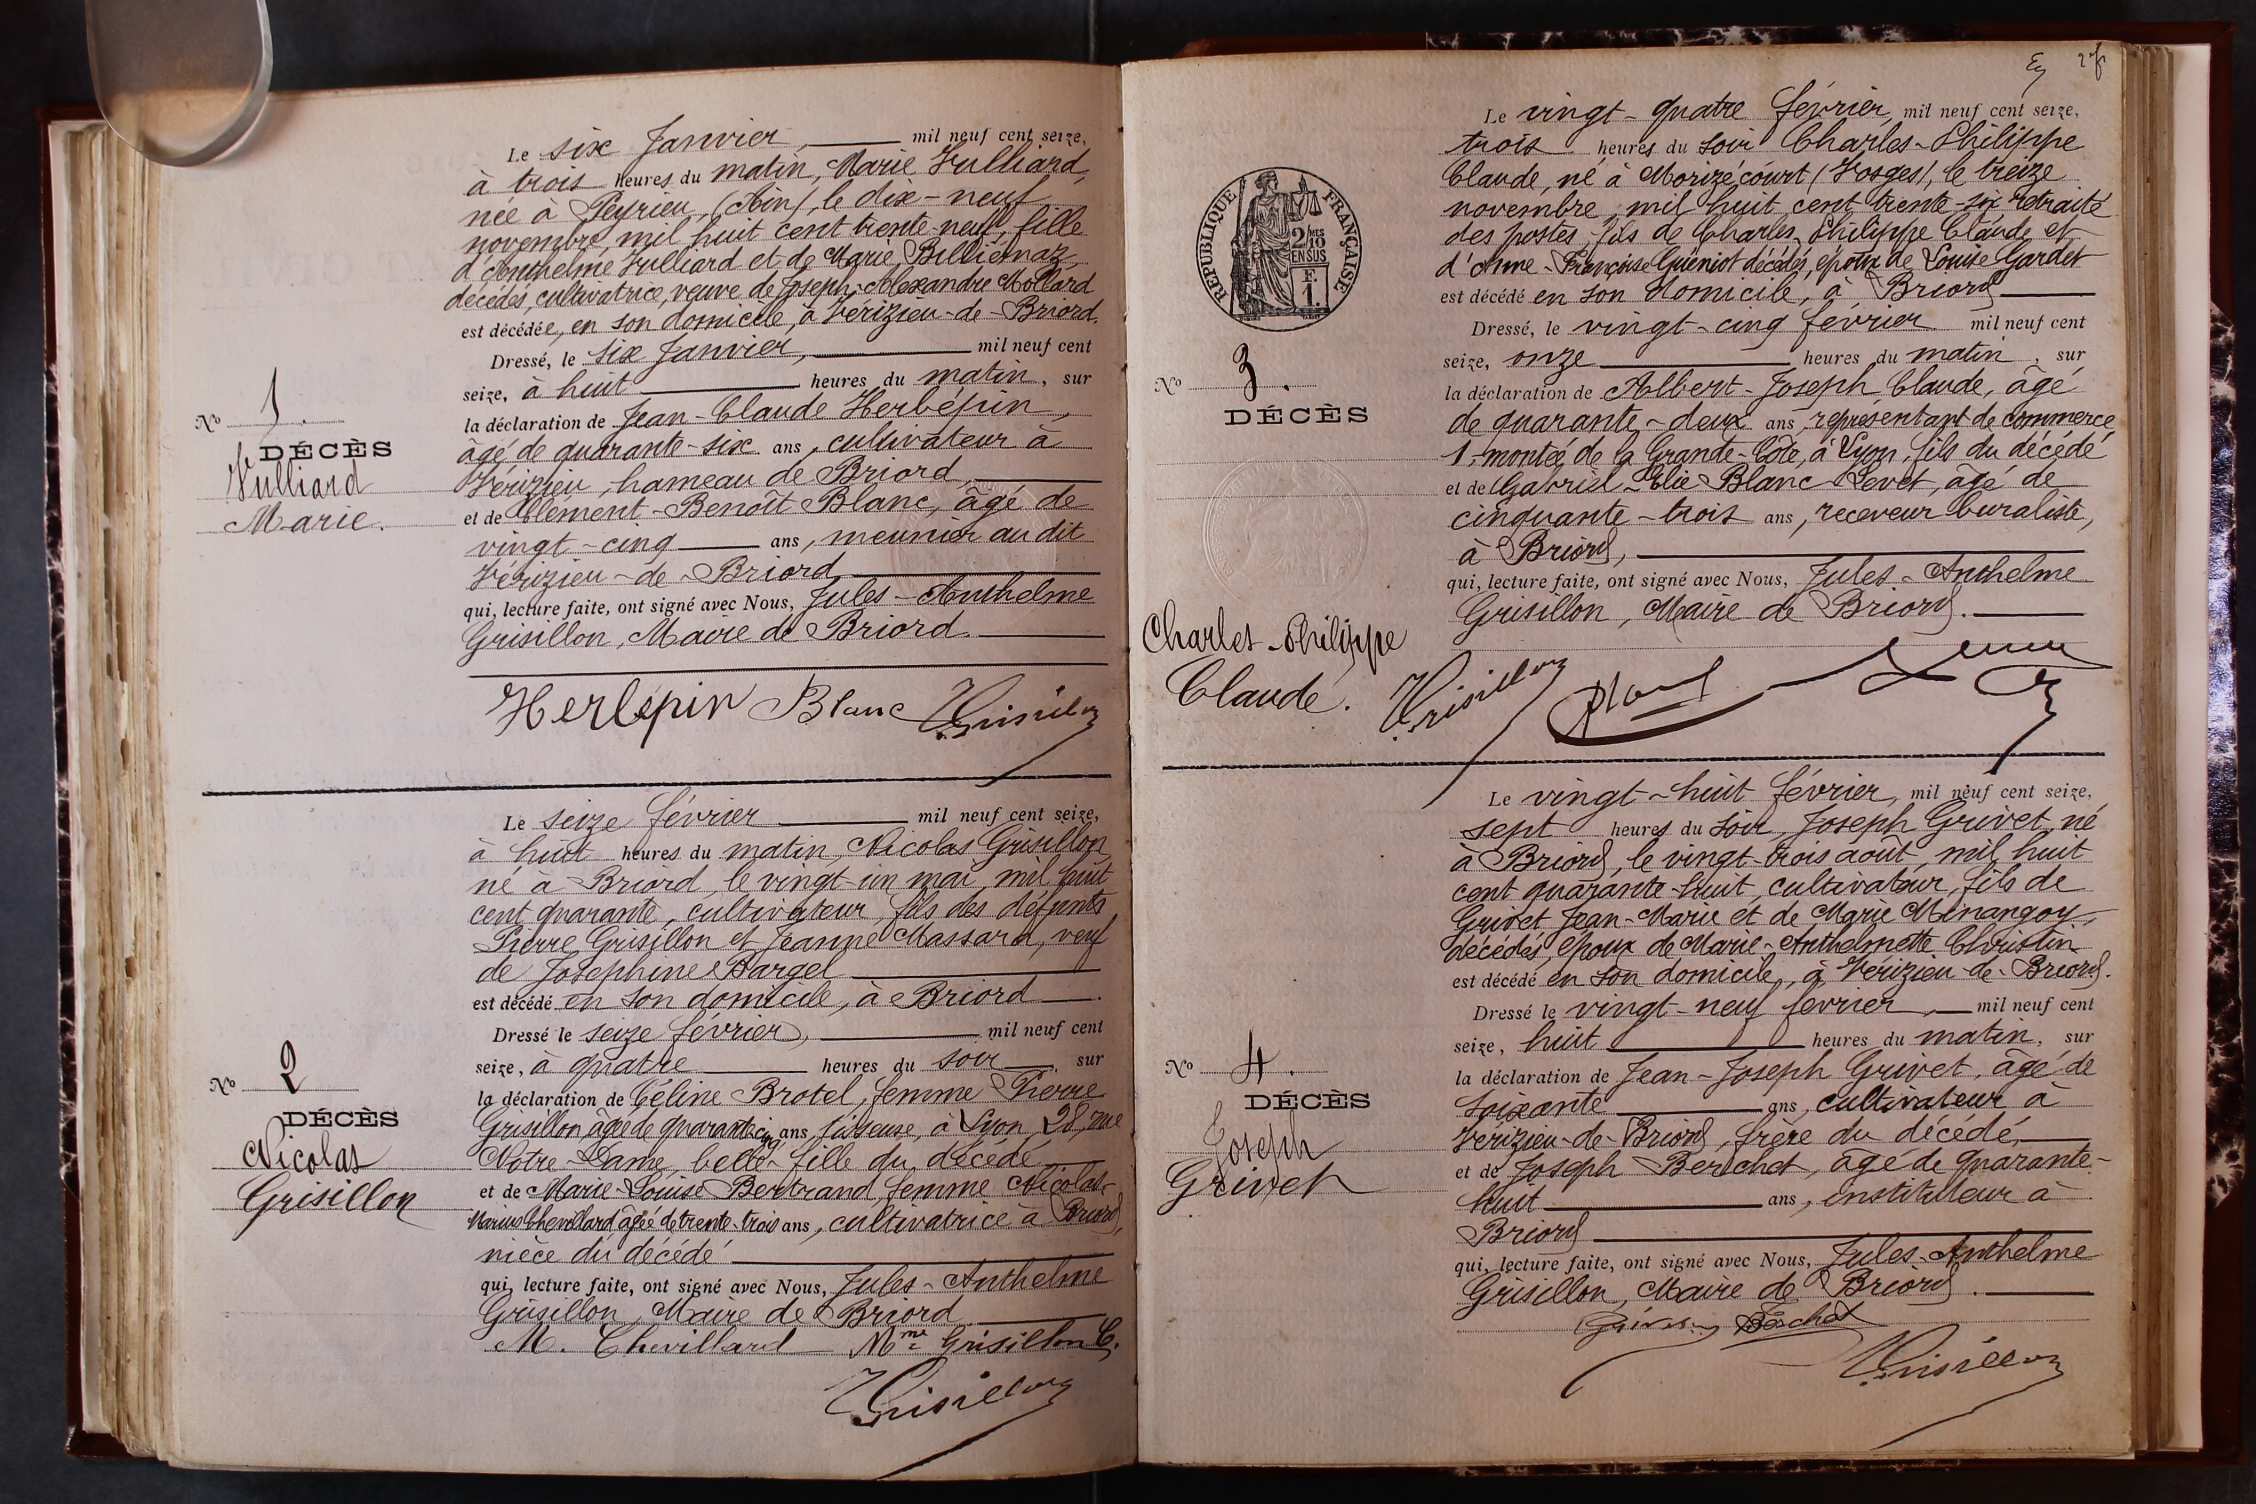 Le six Janvier, mil neuf cent seize,
à trois heures du matin, Marie Vulliard,
née à Peyrieu, (Ain), le dix-neuf
novembre, mil huit cent trente-neuf, fille
d'Anthelme Vulliard et de Marie Billiémaz
décédés, cultivatrice, veuve de Joseph-Alexandre Mollard
est décédée, en son domicile, à Vérizieu-de-Briord.
Dressé, le six Janvier, mil neuf cent
seize, à huit heures du matin, sur
la déclaration de Jean-Claude Herlépin,
âgé de quarante-six ans, cultivateur à
Vérizieu, hameau de Briord,
et de Clément-Benoît Blanc, âgé de
vingt-cinq ans, meunier au dit
Vérizieu-de-Briord
qui, lecture faite, ont signé avec Nous, Jules-Anthelme
Grisillon, Maire de Briord.
Herlépin Blanc Grisillon
No 1.
DÉCÈS
Vulliard
Marie.
Le seize février mil neuf cent seize,
à huit heures du matin, Nicolas Grisillon
né à Briord, le vingt-un mai, mil huit
cent quarante, cultivateur, fils des défunts
Pierre Grisillon et Jeanne Massard, veuf
de Joséphine Bargel
est décédé en son domicile, à Briord
Dressé le seize février, mil neuf cent
seize, à quatre heures du soir sur
la déclaration de Céline Brotel, femme Pierre
Grisillon, âgée de quarante-cinq ans, tisseuse, à Lyon, 28, rue
Notre-Dame, belle-fille du décédé
et de Marie-Louise Bertrand, femme Nicolas-
Marius Chevillard âgée de trente-trois ans, cultivatrice à Briord,
nièce du décédé
qui, lecture faite, ont signé avec Nous, Jules-Anthelme
Grisillon, Maire de Briord
M. Chevillard Mme Grisillon C.
Grisillon
No 2
DÉCÈS
Nicolas
Grisillon
27
Le vingt-quatre février, mil neuf cent seize,
trois heures du soir Charles-Philippe
Claude, né à Morizécourt (Vosges), le treize
novembre, mil huit cent trente-six retraité
des postes, fils de Charles-Philippe Claude et
d'Anne-Françoise Gueniot décédés, époux de Louise Gardet
est décédé en son domicile, à Briord
Dressé, le vingt-cinq février mil neuf cent
seize, onze heures du matin, sur
la déclaration de Albert-Joseph Claude, âgé
de quarante-deux ans, représentant de commerce
1, montée de la Grande-Côte, à Lyon, fils du décédé
et de Gabriel-Elie Blanc-Levet, âgé de
cinquante-trois ans, receveur buraliste,
à Briord,
qui, lecture faite, ont signé avec Nous, Jules-Anthelme
Grisillon, Maire de Briord.
Grisillon Blanc
RÉPUBLIQUE FRANÇAISE
2/10
EN SUS
F.
1.
No 3.
DÉCÈS
Charles-Philippe
Claude.
Le vingt-huit février, mil neuf cent seize,
sept heures du soir, Joseph Grivet, né
à Briord, le vingt-trois août, mil huit
cent quarante-huit, cultivateur, fils de
Grivet Jean-Marie et de Marie Minangoy,
décédés, époux de Marie-Anthelmette Christin
est décédé en son domicile, à Vérizieu-de-Briord.
Dressé le vingt-neuf février, mil neuf cent
seize, huit heures du matin, sur
la déclaration de Jean-Joseph Grivet, âgé de
soixante ans, cultivateur à
Vérizieu-de-Briord, frère du décédé,
et de Joseph Berchet, âgé de quarante-
huit ans, instituteur à
Briord
qui, lecture faite, ont signé avec Nous, Jules-Anthelme
Grisillon, Maire de Briord.
Grivet Berchet
Grisillon
No 4.
DÉCÈS
Joseph
Grivet